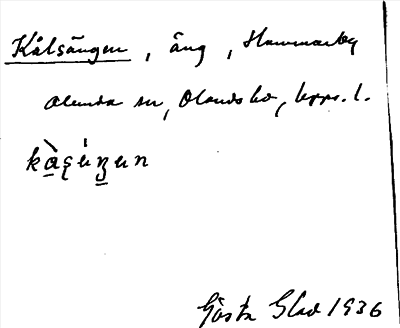 Kålsängen, äng, Hammarby
Alunda sn, Olands hd, Upps. l.
Gösta Glad 1936